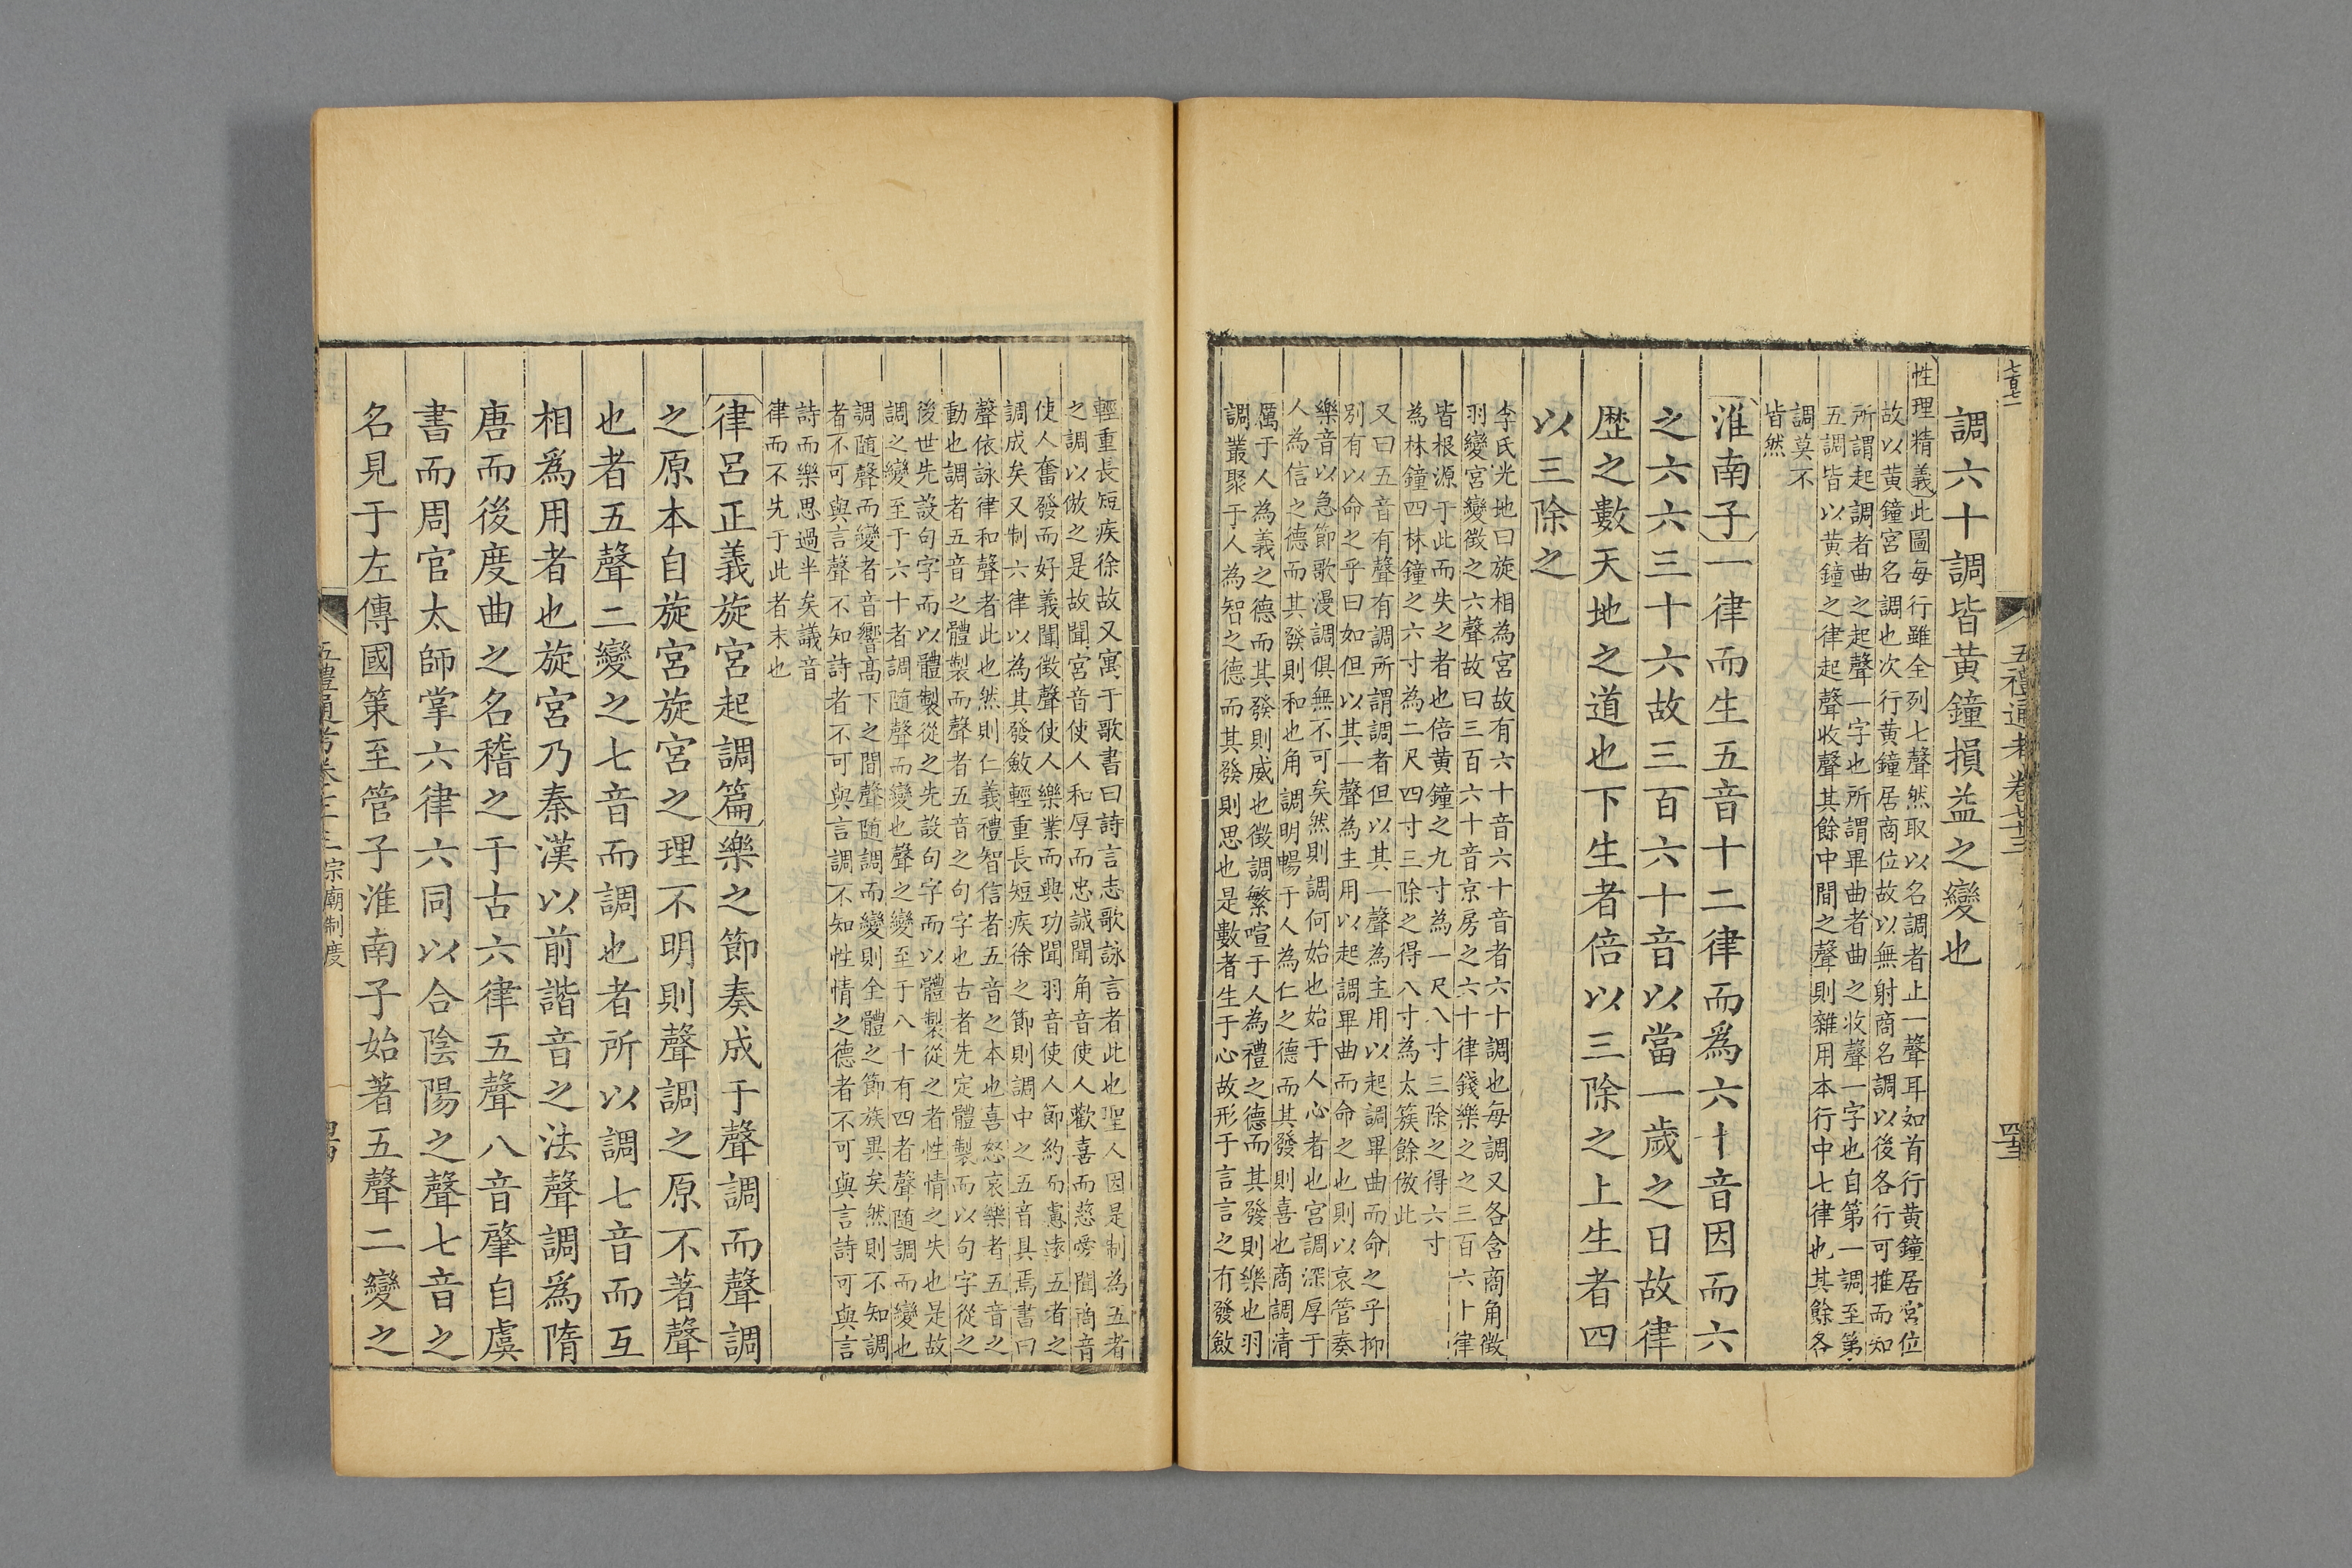 五禮通考卷七十三
調六十調皆黄鐘損益之變也
性理精義此圖每行雖全列七聲然取以名調者止一聲耳如首行黄鐘居宫位
故以黄鐘宫名調也次行黄鐘居商位故以無射商名調以後各行可推而知
所謂起調者曲之起聲一字也所謂畢曲者曲之收聲一字也自第一調至第
五調皆以黄鐘之律起聲收聲其餘中間之聲則雜用本行中七律也其餘各
調莫不
皆然
淮南子一律而生五音十二律而爲六十音因而六
之六六三十六故三百六十音以當一歲之日故律
歴之數天地之道也下生者倍以三除之上生者四
以三除之
李氏光地曰旋相為宮故有六十音六十音者六十調也每調又各含商角徴
羽變宮變徴之六聲故曰三百六十音京房之六十律錢樂之之三百六十律
皆根源于此而失之者也倍黄鐘之九寸為一尺八寸三除之得六寸
為林鐘四林鐘之六寸為二尺四寸三除之得八寸為太簇餘倣此
又曰五音有聲有調所謂調者但以其一聲為主用以起調畢曲而命之乎抑
別有以命之乎曰如但以其一聲為主用以起調畢曲而命之也則以哀管奏
樂音以急節歌漫調俱無不可矣然則調何始也始于人心者也宮調深厚于
人為信之德而其發則和也角調明暢于人為仁之德而其發則喜也商調清
厲于人為義之德而其發則威也徴調繁喧于人為禮之德而其發則樂也羽
調叢聚于人為智之德而其發則思也是數者生于心故形于言言之有發斂
輕重長短疾徐故又寓于歌書曰詩言志歌詠言者此也聖人因是制為五者
之調以倣之是故聞宮音使人和厚而忠誠聞角音使人歡喜而慈愛聞商音
使人奮發而好義聞徴聲使人樂業而興功聞羽音使人節約而慮遠五者之
調成矣又制六律以為其發斂輕重長短疾徐之節則調中之五音具焉書曰
聲依詠律和聲者此也然則仁義禮智信者五音之本也喜怒哀樂者五音之
動也調者五音之體製而聲者五音之句字也古者先定體製而以句字從之
後世先設句字而以體製從之先設句字而以體製從之者性情之失也是故
調之變至于六十者調隨聲而變也聲之變至于八十有四者聲隨調而變也
調隨聲而變者音響高下之間聲隨調而變則全體之節族異矣然則不知調
者不可與言聲不知詩者不可與言調不知性情之德者不可與言詩可與言
詩而樂思過半矣議音
律而不先于此者末也
律呂正義旋宮起調篇樂之節奏成于聲調而聲調
之原本自旋宮旋宮之理不明則聲調之原不著聲
也者五聲二變之七音而調也者所以調七音而互
相爲用者也旋宮乃秦漢以前諧音之法聲調爲隋
唐而後度曲之名稽之于古六律五聲八音肇自虞
書而周官太師掌六律六同以合陰陽之聲七音之
名見于左傳國策至管子淮南子始著五聲二變之
宗廟制度